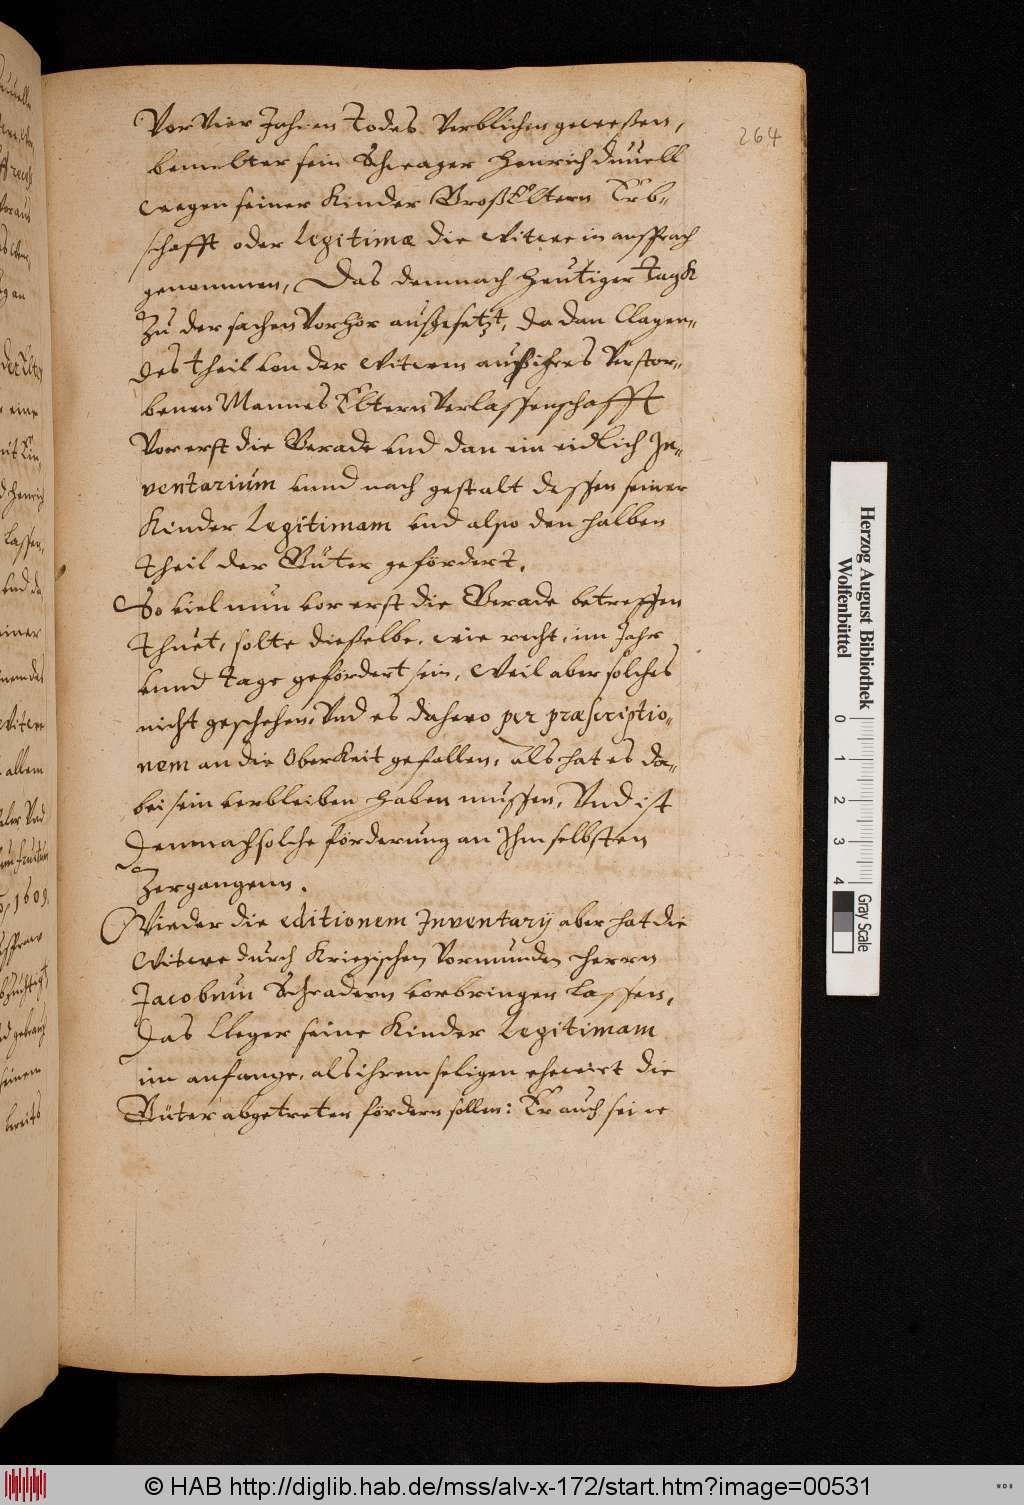 264
Vor Vier Jahren Todes Verblichen geweßen,
bemelter sein Schwager Henrich Duuell
wegen seiner Kinder GroßEltern Erb-
schafft oder legitimæ die Witwe in ansprach
genommen, Das demnach heutiger Tagk
Zu der sachen Vorhör außgesetzt, da dan Clagen-
des theil von der Witwen auß ihres Verstor-
benen Mannes Eltern Verlassenschafft
Vorerst die Gerade und dan ein eidlich In-
ventarium unnd nach gestalt dessen seiner
Kinder Legitimam und also den halben
theil der Güter gefördert.
So viel nun vorerst die Gerade betreffen
thuet, solte dieselbe, wie recht, im Jahr
unnd Tage gefördert sein, Weil aber solches
nicht geschehen, Und es dahero per præscriptio-
nem an die OberKeit gefallen, Als hat es da-
bei sein verbleiben haben mussen, Und ist
demnach solche förderung an Ihm selbsten
Zergangenn.
Wieder die editionem Inventarij aber hat die
Witwe durch Kriegischen Vormunden Herrn
Jacobum Schradern vorbringen lassen,
Das Cleger seine Kinder Legitimam
im anfange, als ihrem seligen ehewirt die
Güter abgetreten fördern sollen: Er auch seine
Herzog August Bibliothek
Wolfenbüttel
0 1 2 3 4
Gray Scale
© HAB http://diglib.hab.de/mss/alv-x-172/start.htm?image=00531